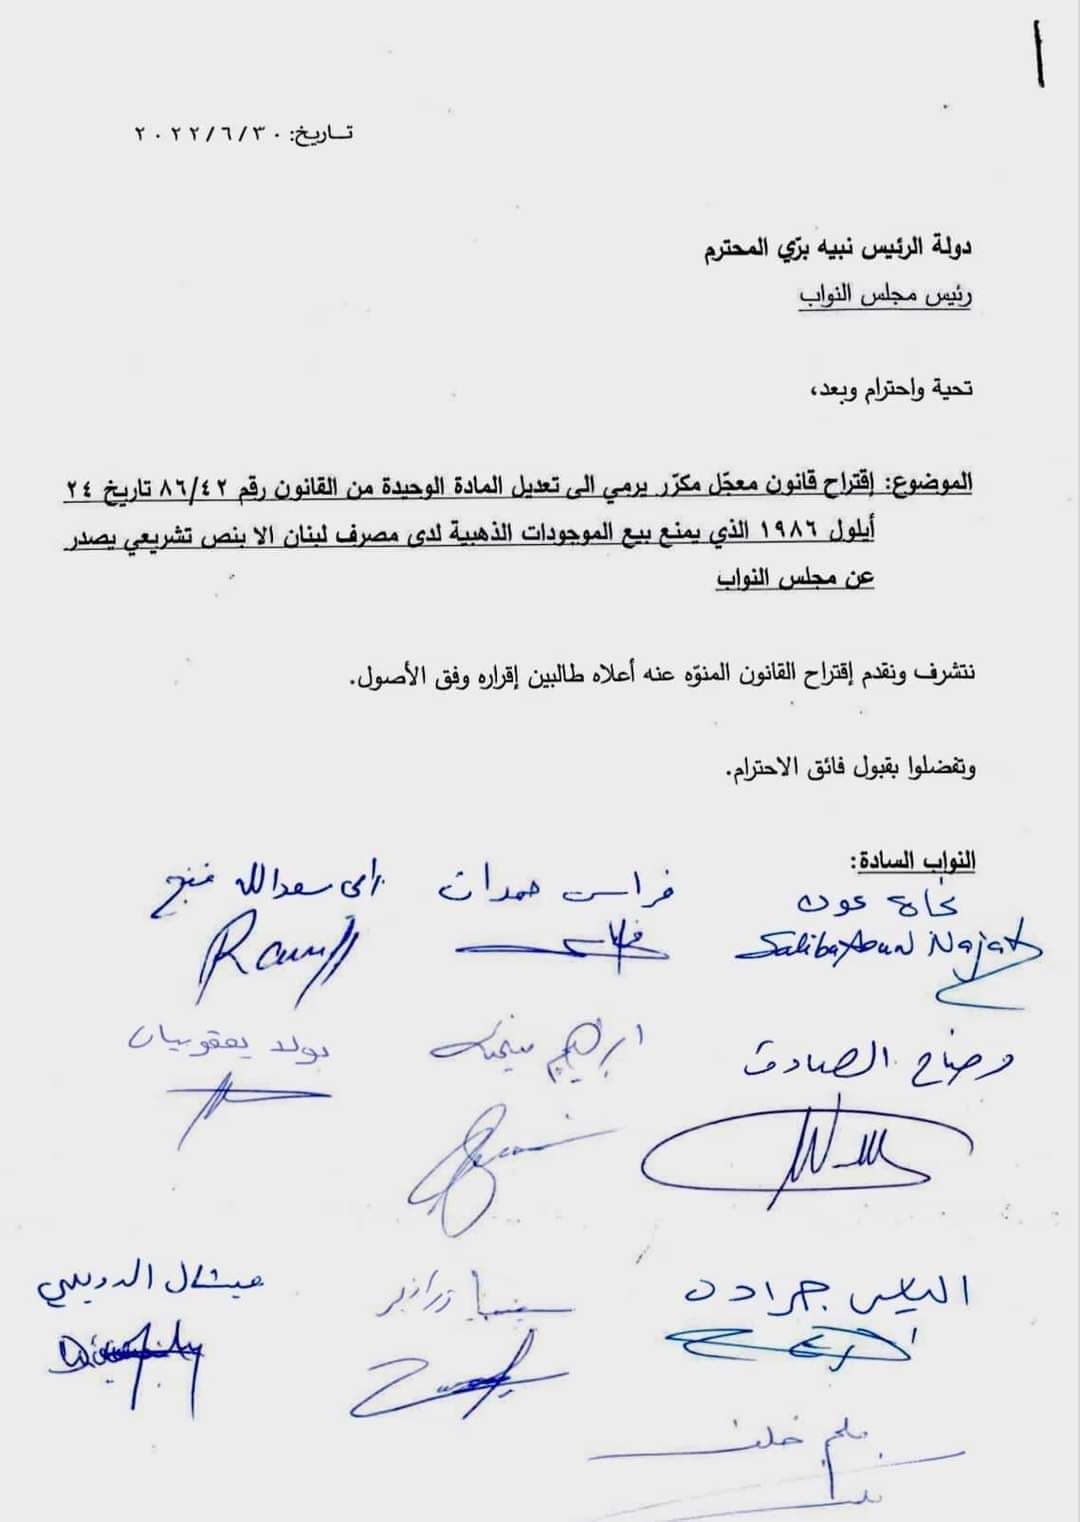 تاريخ: ٢٠٢٢/٦/٣٠
دولة الرئيس نبيه برّي المحترم
رئيس مجلس النواب
تحية واحترام وبعد،
الموضوع: إقتراح قانون معجّل مكرّر يرمي الى تعديل المادة الوحيدة من القانون رقم ٨٦/٤٢ تاريخ ٢٤
أيلول ١٩٨٦ الذي يمنع بيع الموجودات الذهبية لدى مصرف لبنان الا بنص تشريعي يصدر
عن مجلس النواب
نتشرف ونقدم إقتراح القانون المنوّه عنه أعلاه طالبين إقراره وفق الأصول.
وتفضلوا بقبول فائق الاحترام.
النواب السادة:
نجاة عون فراس حمدان رامي سعدالله فنج
Saliba Aoun Najat
وضاح الصادق ابراهيم منيمنة بولا يعقوبيان
الياس جرادة سينتيا زرازير ميشال الدويهي
ملحم خلف